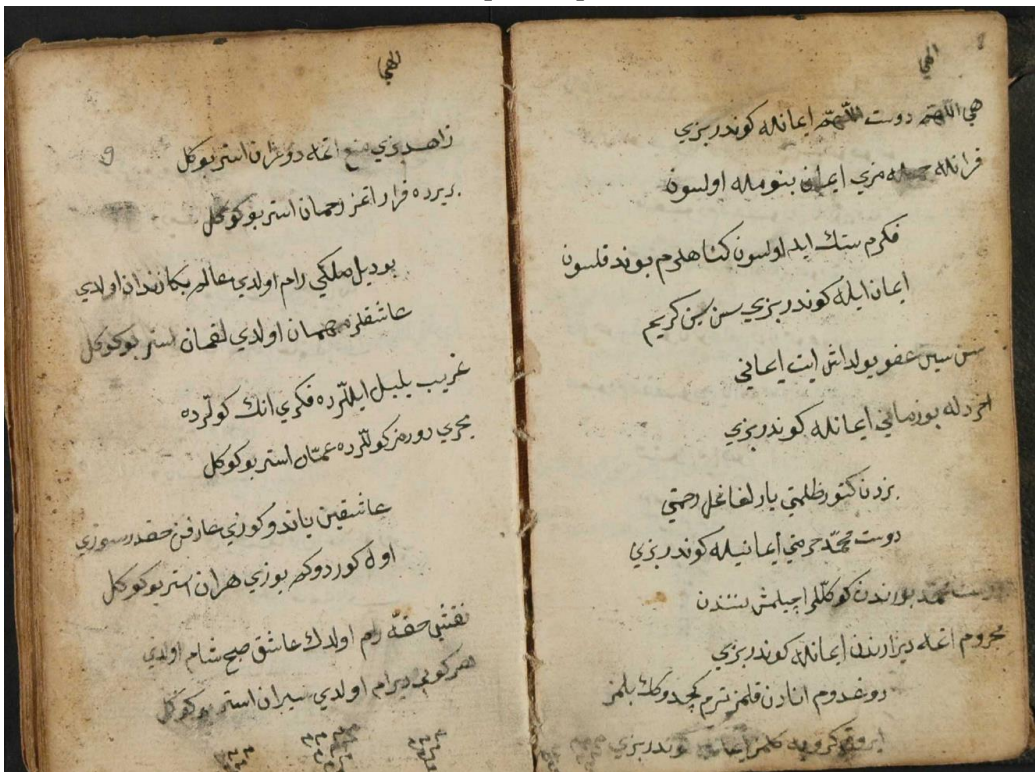 الهي
هي اللهم دوست اللهم ايمانله كوندر بزي
قرانله جمله مزي ايمان بنومله اولسون
فكرم سنك ايله اولسون كناهلرم بونده قلسون
ايمان ايله كوندر بزي سن سين كريم
سن سين عفو يولداش ايت ايماني
اخردله بو زماني ايمانله كوندر بزي
بزدن كتور ظلمتي يارلغاغل رحمتي
دوست محمد حرمتي ايمانيله كوندر بزي
دوست محمد كوكللر اچيلمش
محروم اتمه ديزارندن ايمانله كوندر بزي
دوغدوم انادن قلمز كچدوكك بلمز
كيرويه كلمز كوندر بزي
الهي
زاهد بزي منع اتمه استر بو كوكل
بريرده قرار اتمز رحمان استر بو كوكل
بو ديل ملكي رام اولدي عالم بكا زندان اولدي
عاشقلره مهمان اولدي لقمان استر بو كوكل
غريب بلبل ايللرده فكري انك كوللرده
بحري دورمز كوللرده عمان استر بو كوكل
عاشقين ياندو كوزي عارفن حقدر سوزي
اوله كوردوكم يوزي هران استر بو كوكل
نقشي حقه رام اولدك عاشق صبح شام اولدي
هر كوني بيرام اولدي سيران استر بو كوكل